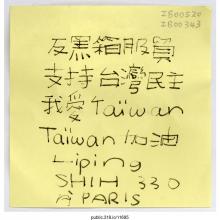 IB00520
IB00343
反黑箱服貿
支持台灣民主
我愛Taiwan
Taiwan加油
Liping
SHIH 330
PARIS
public.318.io/11685